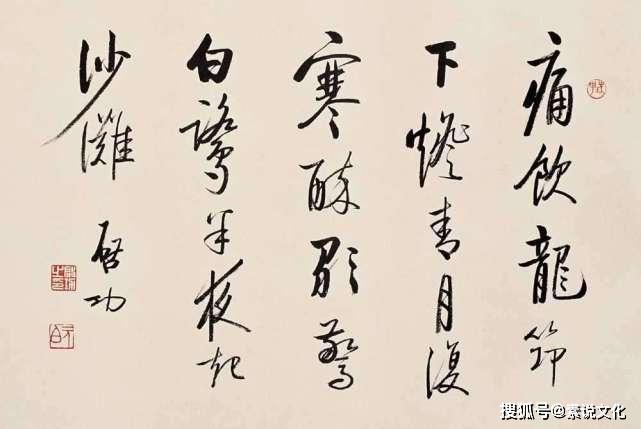 痛飲龍筇
下燈青月復
寒醉歌驚
白鷺半夜起
沙灘
啟功
搜狐号@素说文化